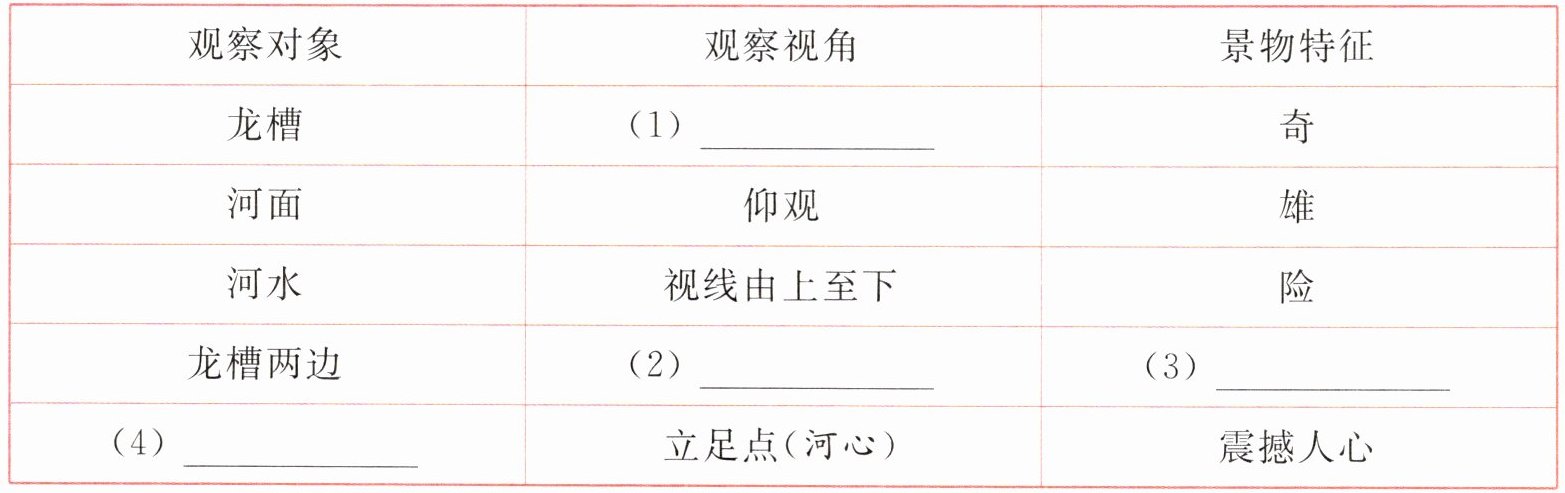 观察对象 观察视角 景物特征
龙槽 (1)____________ 奇
河面 仰观 雄
河水 视线由上至下 险
龙槽两边 (2)____________ (3)____________
(4)____________ 立足点(河心) 震撼人心